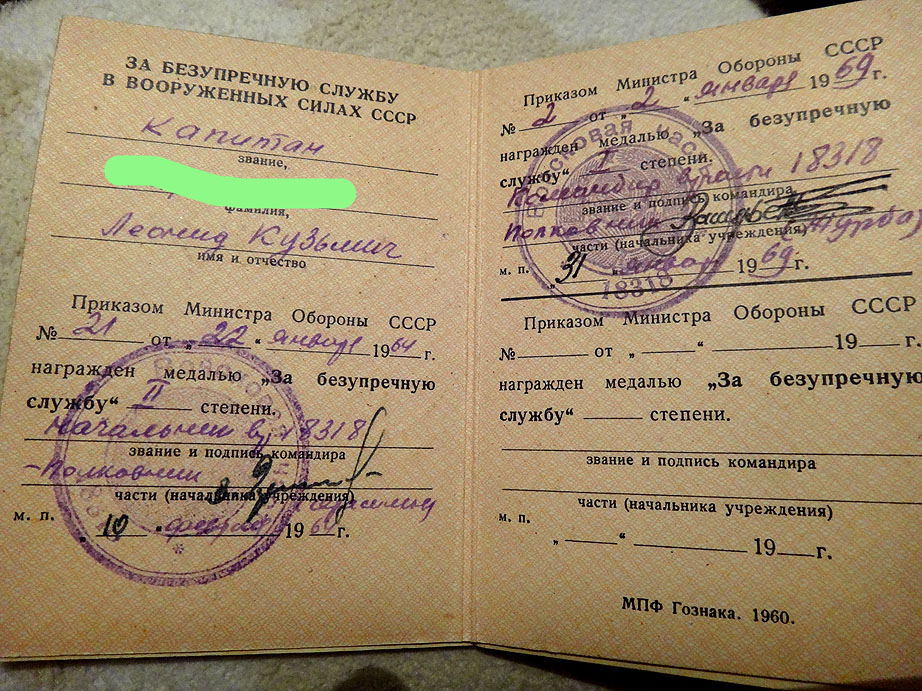 ЗА БЕЗУПРЕЧНУЮ СЛУЖБУ
В ВООРУЖЕННЫХ СИЛАХ СССР
Капитан
звание,
фамилия,
Леонид Кузьмич
имя и отчество
Приказом Министра Обороны СССР
№ 21 от „22“ января 1964 г.
награжден медалью „За безупречную
службу“ II степени.
Начальник в/ч 18318
звание и подпись командира
Полковник
части (начальника учреждения)
м. п. 10 февраля 1964 г.
Приказом Министра Обороны СССР
№ 2 от „2“ января 1969 г.
награжден медалью „За безупречную
службу“ I степени.
Командир в/части 18318
звание и подпись командира
Полковник
части (начальника учреждения)
м. п. „31 январ 1969 г.
Войсковая часть
18318
Приказом Министра Обороны СССР
№ от „ “ 19 г.
награжден медалью „За безупречную
службу“ степени.
звание и подпись командира
части (начальника учреждения)
м. п.
„ “ 19 г.
МПФ Гознака. 1960.